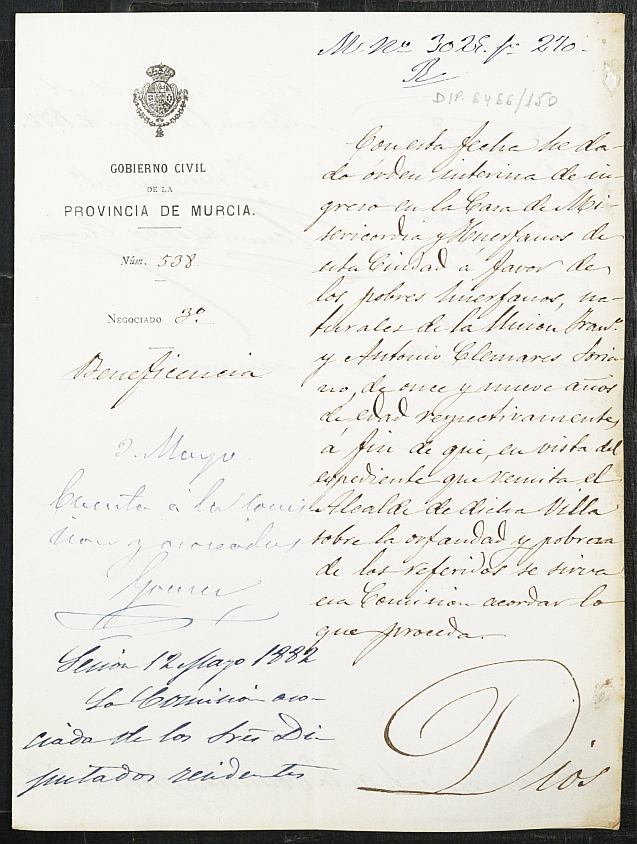 GOBIERNO CIVIL
DE LA
PROVINCIA DE MURCIA.
Núm. 538
NEGOCIADO 3º
Beneficencia
2. Mayo.
Cuenta á la Comi
sion y asociados
Gomez
Sesion 12 Mayo 1882
La Comision aso-
ciada de los Sres Di-
putados residentes
Nº 3025. fº 270.
DIP. 6466/150
Con esta fecha he da-
do órden interina de in-
greso en la Casa de Mi-
sericordia y Huerfanos de
esta Ciudad á favor de
los pobres huerfanos, na-
turales de la Union Franº
y Antonio Clemares Soria
no, de once y nueve años
de edad respectivamente,
á fin de que, en vista del
expediente que remita el
Alcalde de dicha Villa
sobre la orfandad y pobreza
de los referidos se sirva
esa Comision acordar lo
que proceda.
Dios